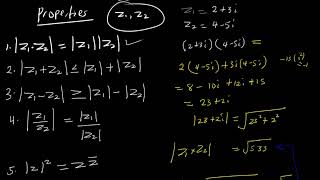 Properties z₁, z₂
1. |z₁·z₂| = |z₁||z₂| ✓
2. |z₁+z₂| ≤ |z₁| + |z₂|
3. |z₁-z₂| ≥ |z₁| - |z₂|
4. |z₁/z₂| = |z₁|/|z₂|
5. |z|² = z z̄
z₁ = 2+3i
z₂ = 4-5i
(2+3i)(4-5i)
2(4-5i)+3i(4-5i)
= 8-10i+12i+15
= 23+2i
|23+2i| = √23²+2²
|z₁×z₂| = √533